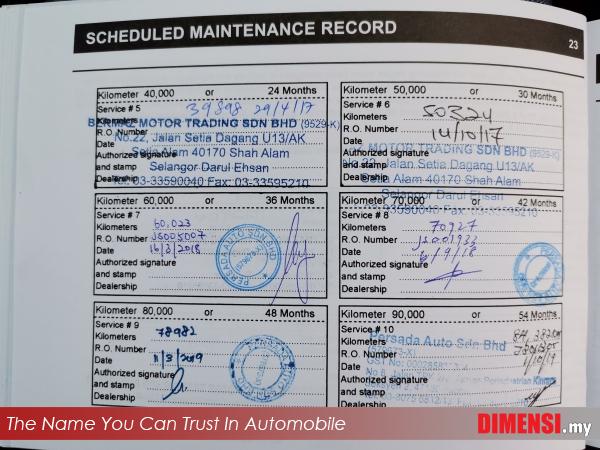 SCHEDULED MAINTENANCE RECORD
23
Kilometer 40,000 or 24 Months
Service # 5 39898 29/4/17
Kilometers
R.O. Number
Date
Authorized signature
and stamp
Dealership
BERMAZ MOTOR TRADING SDN BHD (9529-K)
No.22, Jalan Setia Dagang U13/AK
Setia Alam 40170 Shah Alam
Selangor Darul Ehsan
Tel: 03-33590040 Fax: 03-33595210
Kilometer 50,000 or 30 Months
Service # 6
Kilometers 50324
R.O. Number
Date 14/10/17
Authorized signature
and stamp
Dealership
MOTOR TRADING SDN BHD (9529-K)
No.22, Jalan Setia Dagang U13/AK
Setia Alam 40170 Shah Alam
Selangor Darul Ehsan
33590040 Fax: 03-33595210
Kilometer 60,000 or 36 Months
Service # 7
Kilometers 60,023
R.O. Number J6005007
Date 16/3/2018
Authorized signature
and stamp
Dealership
PERSADA AUTO SDN BHD
Kilometer 70,000 or 42 Months
Service # 8
Kilometers 70927
R.O. Number
Date /9/18
Authorized signature
and stamp
Dealership
Kilometer 80,000 or 48 Months
Service # 9
Kilometers 78982
R.O. Number
Date 11/3/2019
Authorized signature
and stamp
Dealership
Kilometer 90,000 or 54 Months
Service # 10
Kilometers
R.O. Number
Date
Authorized signature
and stamp
Dealership
Persada Auto Sdn Bhd
The Name You Can Trust In Automobile
DIMENSI.my